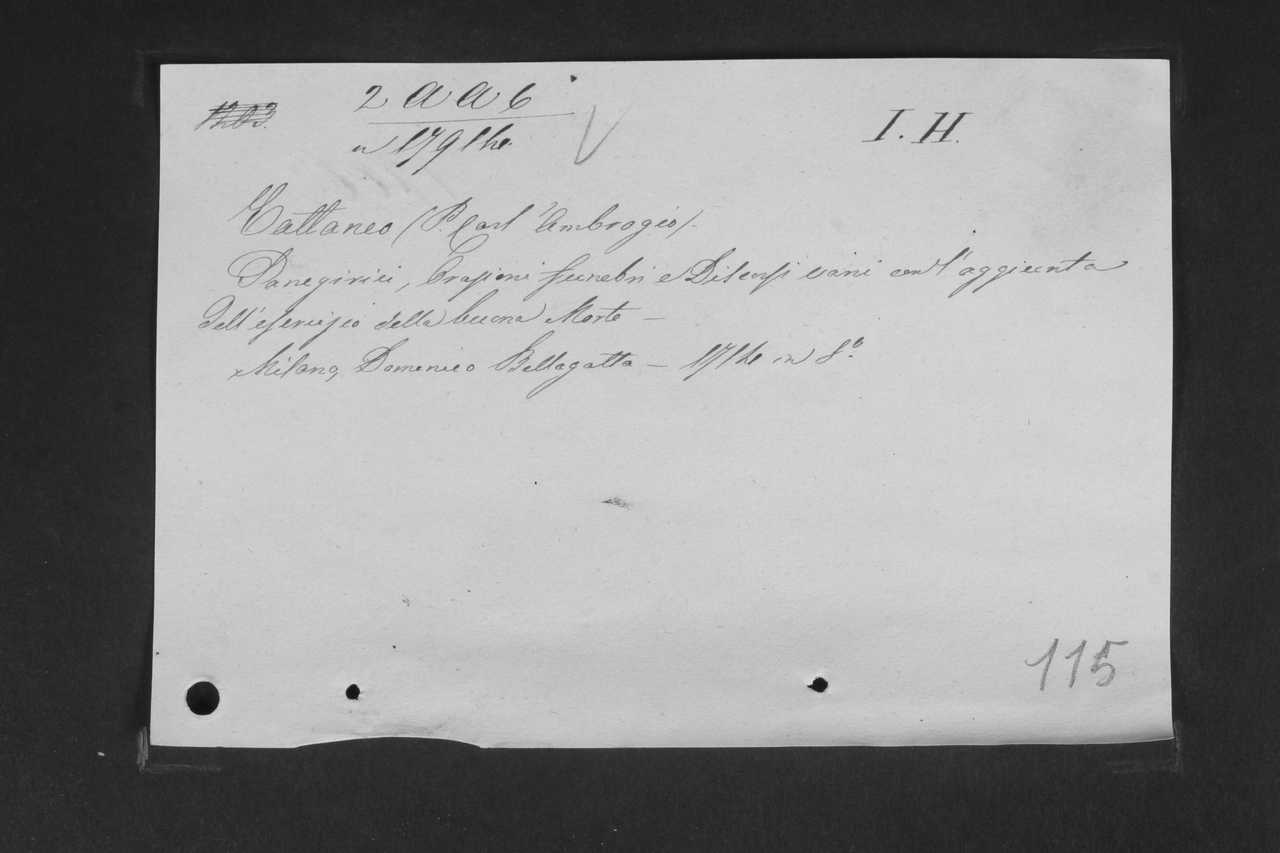 1203.
2 a a 6
I. H.
Cattaneo (P. Carl'Ambrogio).
Panegirici, Orazioni funebri e Discorsi varii con l'aggiunta
dell'esercizio della buona Morte –
Milano, Domenico Bellagatta – in 8º.
115